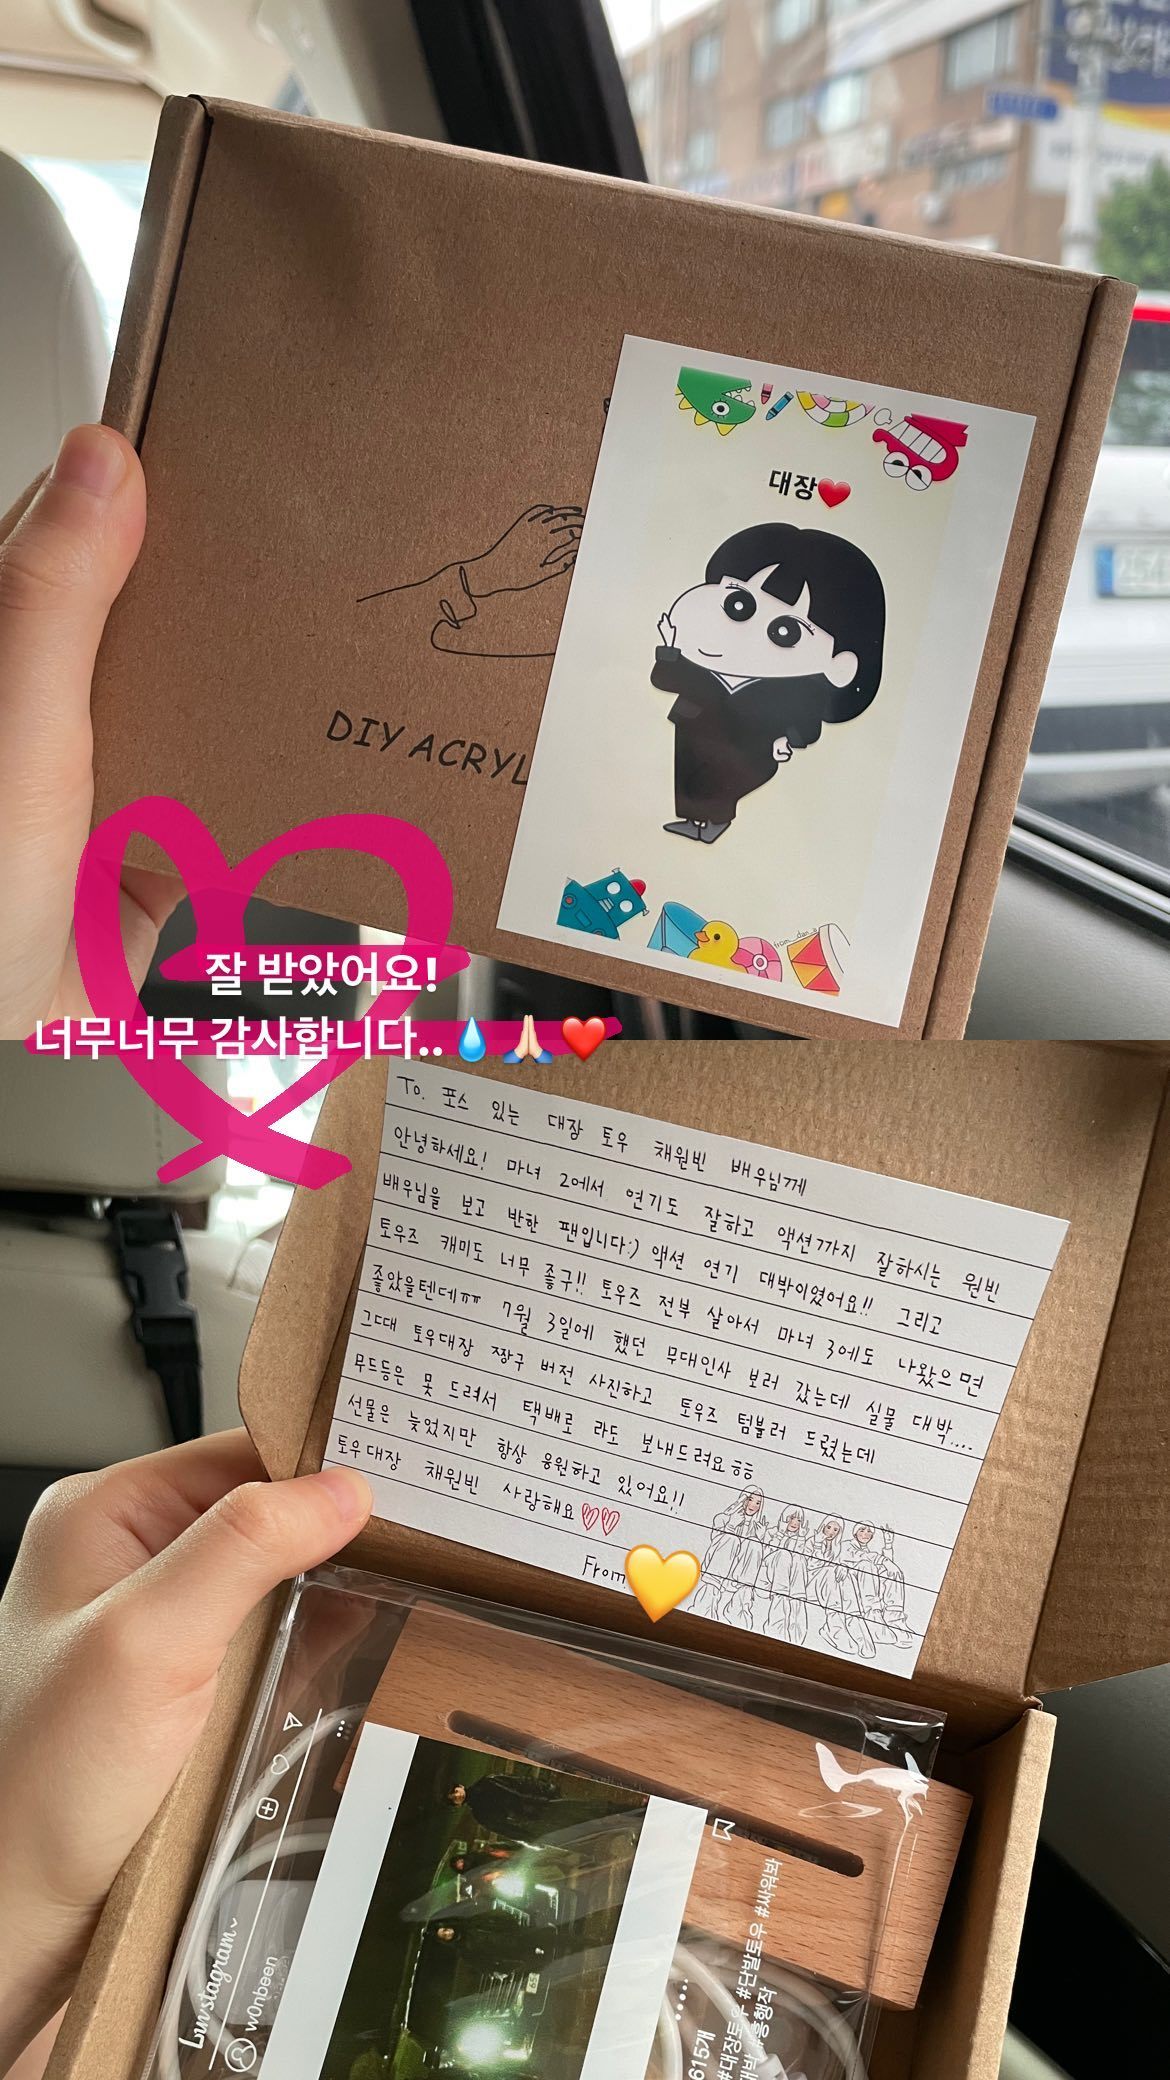 대장❤️
DIY ACRYL
from_dan_a
잘 받았어요!
너무너무 감사합니다.. 💧🙏🏻❤️
To. 포스 있는 대장 토우 채원빈 배우님께
안녕하세요! 마녀 2에서 연기도 잘하고 액션까지 잘하시는 원빈
배우님을 보고 반한 팬입니다:) 액션 연기 대박이였어요!! 그리고
토우즈 캐미도 너무 좋구!! 토우즈 전부 살아서 마녀 3에도 나왔으면
좋았을텐데ㅠㅠ 7월 3일에 했던 무대인사 보러 갔는데 실물 대박....
그때 토우대장 짱구 버전 사진하고 토우즈 텀블러 드렸는데
무드등은 못 드려서 택배로 라도 보내드려요 ㅎㅎ
선물은 늦었지만 항상 응원하고 있어요!!
토우대장 채원빈 사랑해요♡♡
From 💛
w0nbeen
615개
#대장토우 #단발토우 #싸워봐
#흥행작